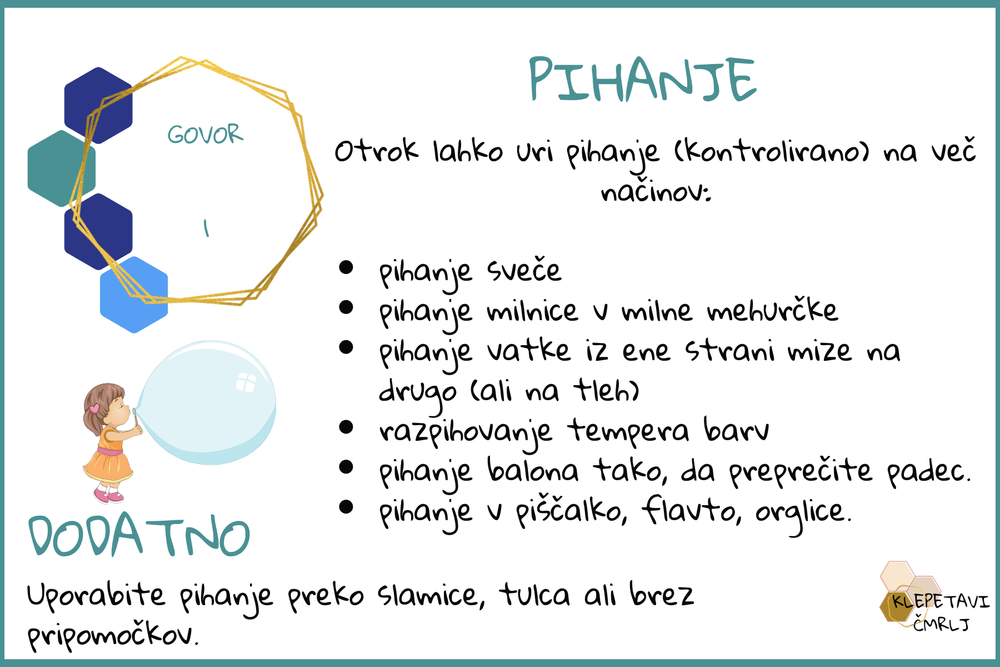 GOVOR
1
PIHANJE
Otrok lahko uri pihanje (kontrolirano) na več
načinov:
• pihanje sveče
• pihanje milnice v milne mehurčke
• pihanje vatke iz ene strani mize na
drugo (ali na tleh)
• razpihovanje tempera barv
• pihanje balona tako, da preprečite padec.
• pihanje v piščalko, flavto, orglice.
DODATNO
Uporabite pihanje preko slamice, tulca ali brez
pripomočkov.
KLEPETAVI
ČMRLJ